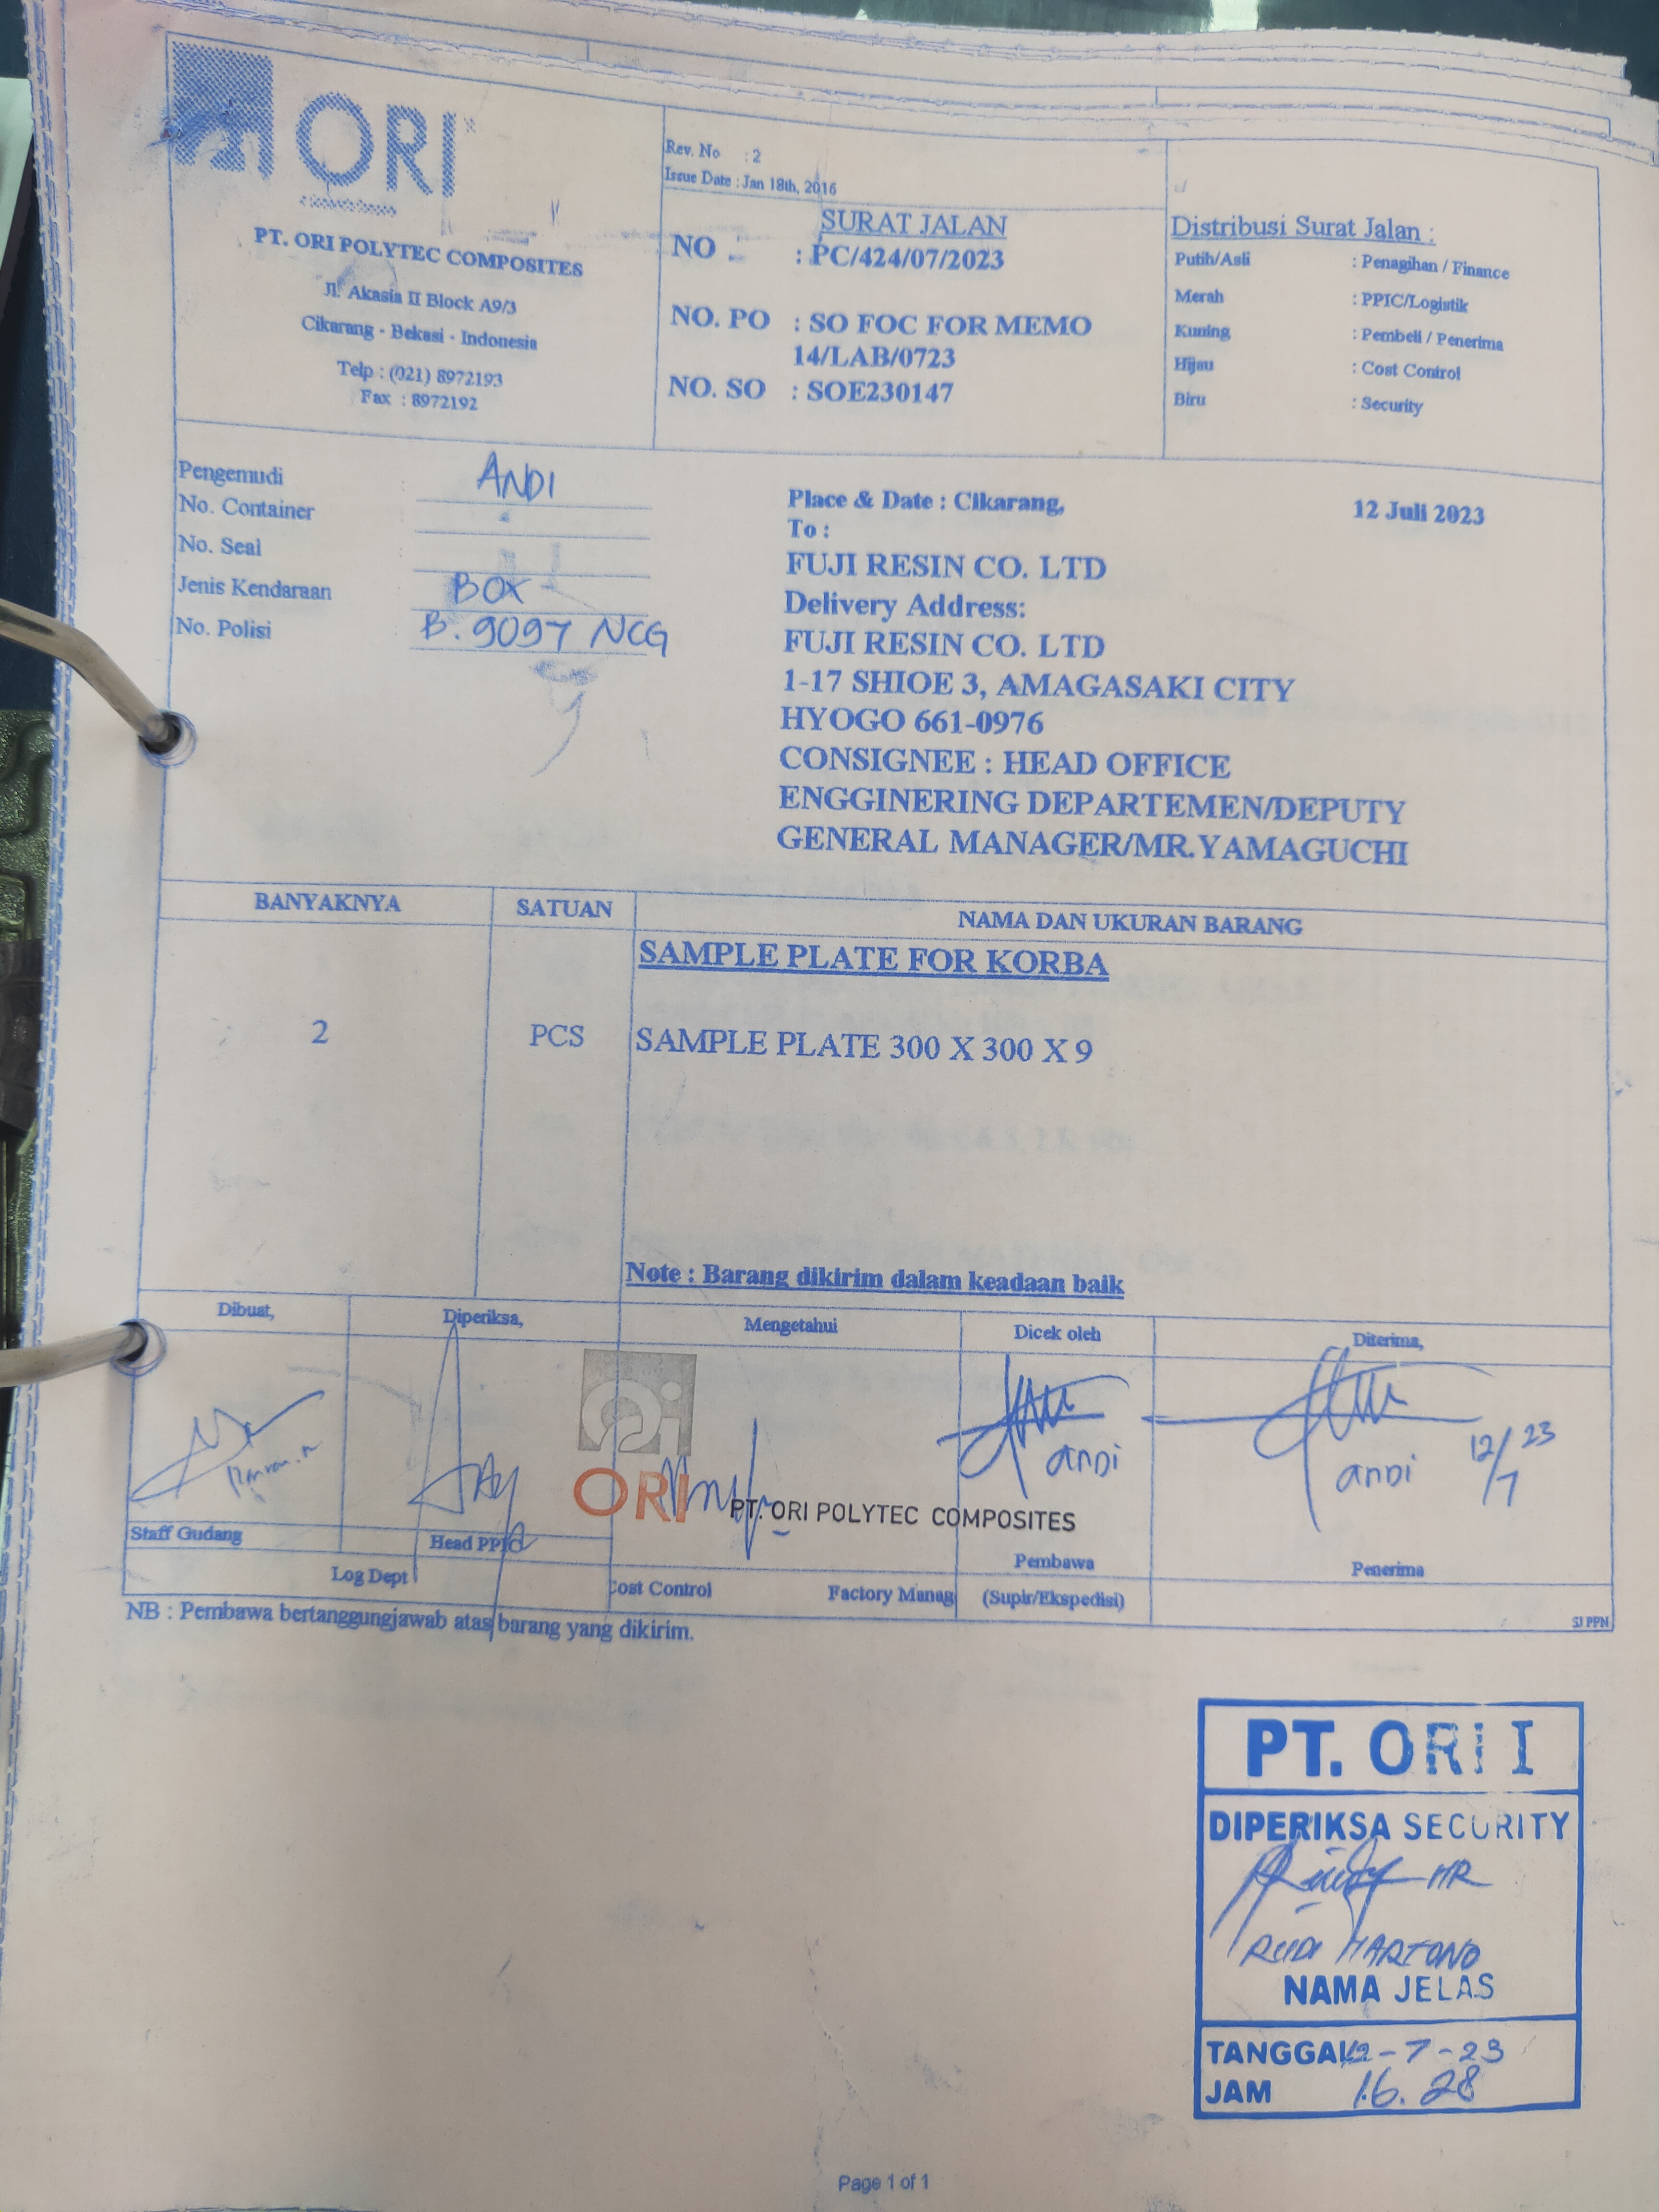 ORI
PT. ORI POLYTEC COMPOSITES
Jl. Akasia II Block A9/3
Cikarang - Bekasi - Indonesia
Telp : (021) 8972193
Fax : 8972192
Rev. No : 2
Issue Date : Jan 18th, 2016
SURAT JALAN
NO : PC/424/07/2023
NO. PO : SO FOC FOR MEMO
14/LAB/0723
NO. SO : SOE230147
Distribusi Surat Jalan :
Putih/Asli : Penagihan / Finance
Merah : PPIC/Logistik
Kuning : Pembeli / Penerima
Hijau : Cost Control
Biru : Security
Pengemudi : ANDI
No. Container :
No. Seal :
Jenis Kendaraan BOX
No. Polisi B. 9097 NCG
Place & Date : Cikarang, 12 Juli 2023
To :
FUJI RESIN CO. LTD
Delivery Address:
FUJI RESIN CO. LTD
1-17 SHIOE 3, AMAGASAKI CITY
HYOGO 661-0976
CONSIGNEE : HEAD OFFICE
ENGGINERING DEPARTEMEN/DEPUTY
GENERAL MANAGER/MR.YAMAGUCHI
BANYAKNYA SATUAN NAMA DAN UKURAN BARANG
SAMPLE PLATE FOR KORBA
2 PCS SAMPLE PLATE 300 X 300 X 9
Note : Barang dikirim dalam keadaan baik
Dibuat, Diperiksa, Mengetahui Dicek oleh Diterima,
andi
andi 12/7 23
ORI PT. ORI POLYTEC COMPOSITES
Staff Gudang Head PPIC Pembawa Penerima
Log Dept Cost Control Factory Manag (Supir/Ekspedisi)
SJ PPN
NB : Pembawa bertanggungjawab atas barang yang dikirim.
PT. ORI I
DIPERIKSA SECURITY
HR
RUDI HARTONO
NAMA JELAS
TANGGAL 12-7-23
JAM 16.28
Page 1 of 1